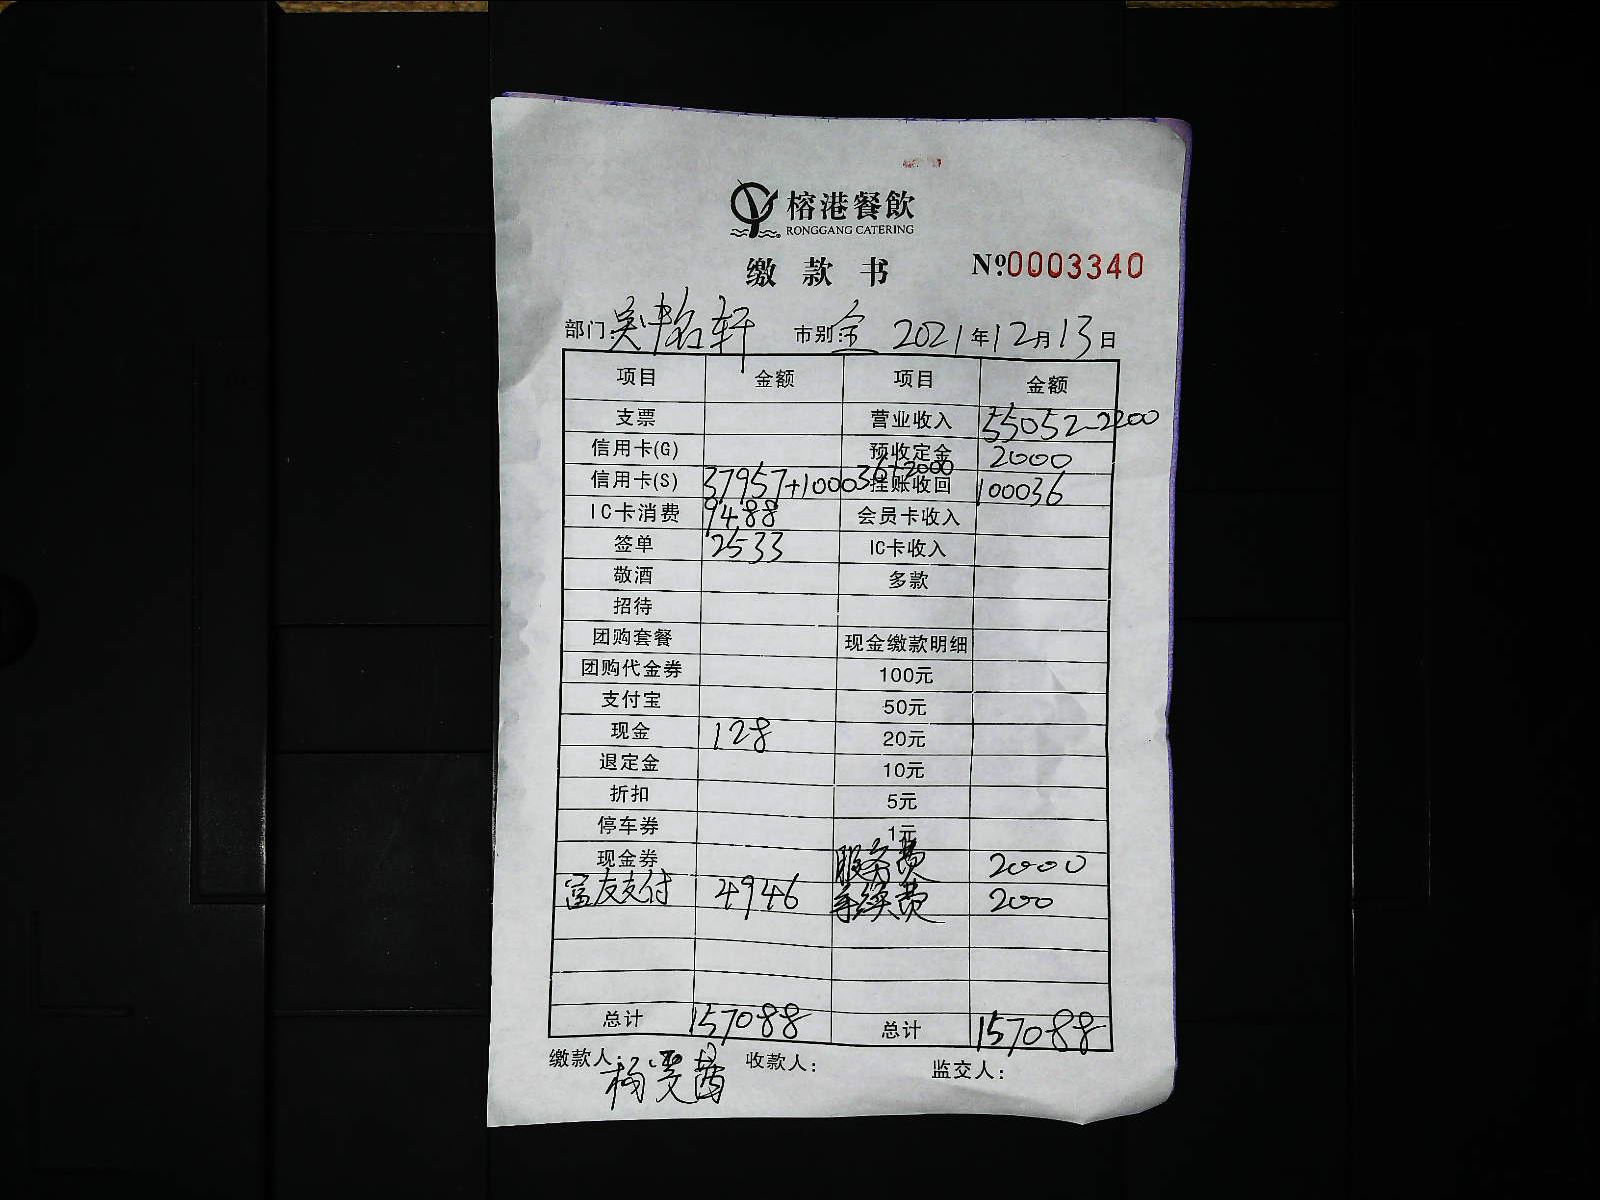 榕港餐飲
RONGGANG CATERING
缴款书 №0003340
部门: 名轩 市别:全 2021年12月13日
项目 金额 项目 金额
支票 营业收入 55052-2200
信用卡(G) 预收定金 2000
信用卡(S) 37957+100036+2000 挂账收回 100036
IC卡消费 9488 会员卡收入
签单 2533 IC卡收入
敬酒 多款
招待
团购套餐 现金缴款明细
团购代金券 100元
支付宝 50元
现金 128 20元
退定金 10元
折扣 5元
停车券 1元
现金券 服务费 2000
富友支付 4946 手续费 200
总计 157088 总计 157088
缴款人: 杨雯茜 收款人: 监交人: